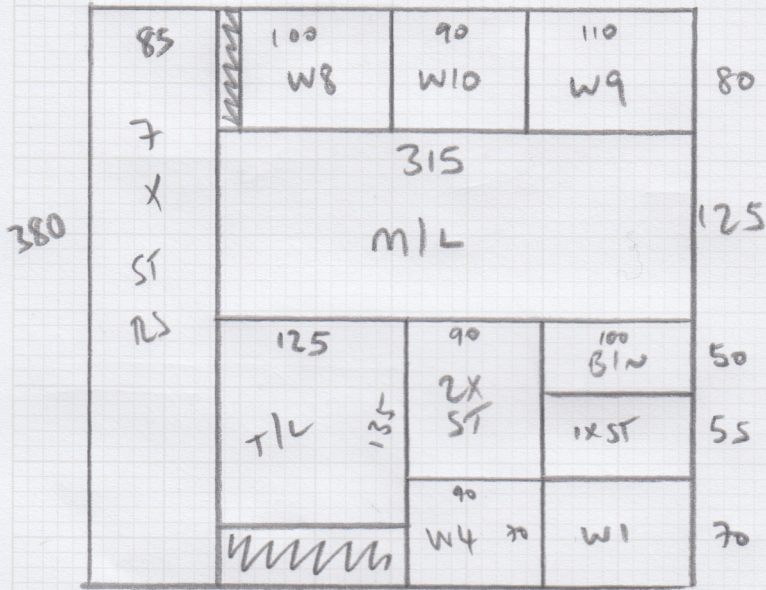 85
7
X
ST
RS
380
100
W8
90
W10
110
W9
80
315
M/L
125
125
T/L
135
90
2X
ST
100
BIN
50
1XST
55
90
W4
70
W1
70